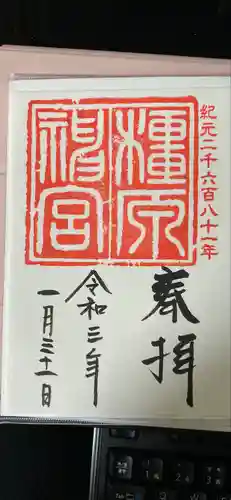 紀元二千六百八十一年
橿原
神宮
奉拝
令和三年
一月三十一日